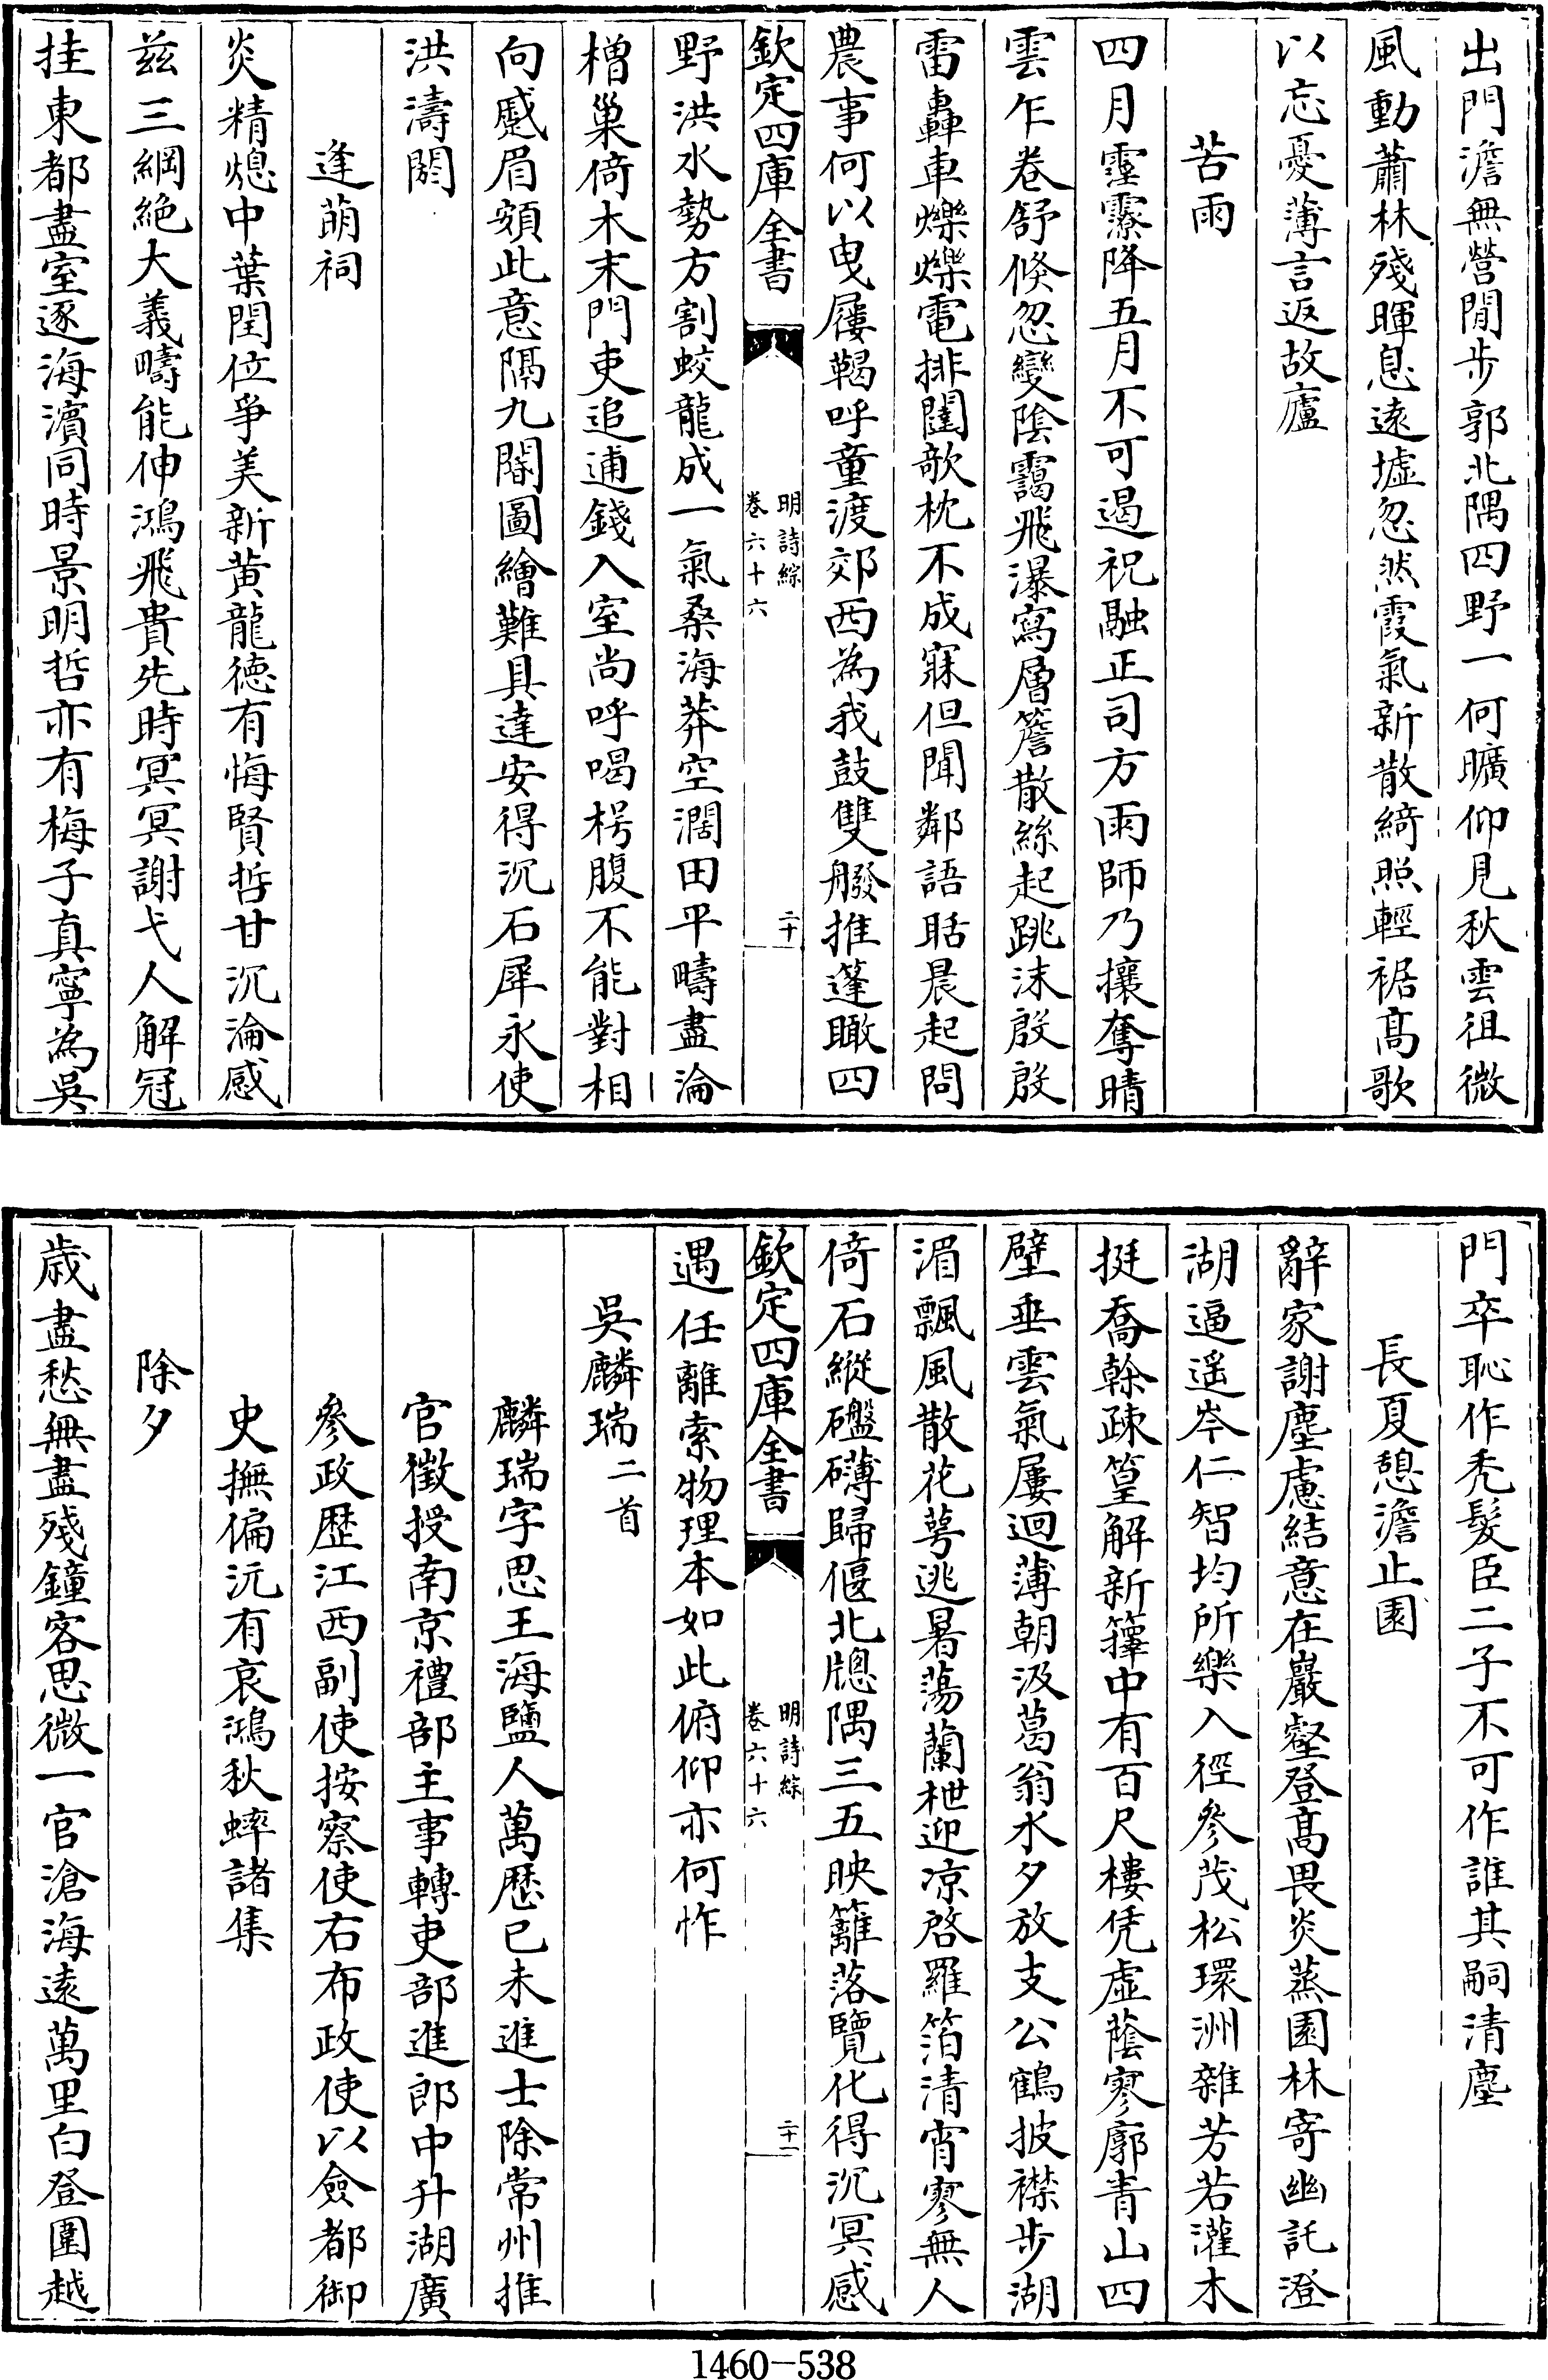 出門澹無營閒步郭北隅四野一何曠仰見秋雲徂微
風動蕭林殘暉息遠墟忽然霞氣新散綺照輕裾髙歌
以忘憂薄言返故廬
苦雨
四月霪霖降五月不可遏祝融正司方雨師乃攘奪晴
雲乍卷舒倐忽變陰靄飛瀑寫層簷散絲起跳沫殷殷
雷轟車爍爍電排闥欹枕不成寐但聞鄰語聒晨起問
農事何以曳屨鞨呼童渡郊西為我鼓雙艘推蓬瞰四
欽定四庫全書
明詩綜
卷六十六
二十
野洪水勢方割蛟龍成一氣桑海莽空濶田平疇盡淪
橧巢倚木末門吏追逋錢入室尚呼喝枵腹不能對相
向蹙眉頞此意隔九閽圖繪難具達安得沉石犀永使
洪濤閼
逢萌祠
炎精熄中葉閏位爭美新黄龍德有悔賢哲甘沉淪感
兹三綱絶大義疇能伸鴻飛貴先時冥冥謝弋人解冠
挂東都盡室逐海濱同時景明哲亦有梅子真寧為吳
門卒恥作禿髮臣二子不可作誰其嗣清塵
長夏憩澹止園
辭家謝塵慮結意在巖壑登髙畏炎蒸園林寄幽託澄
湖逼遥岑仁智均所樂入徑參茂松環洲雜芳若灌木
挺喬榦疎篁解新籜中有百尺樓凭虛蔭寥廓青山四
壁垂雲氣屢迴薄朝汲葛翁水夕放支公鶴披襟步湖
湄飄風散花蕚逃暑蕩蘭枻迎凉啓羅箔清宵寥無人
倚石縱礠礴歸偃北牕隅三五映籬落覽化得沉冥感
欽定四庫全書
明詩綜
卷六十六
二十一
遇任離索物理本如此俯仰亦何怍
吳麟瑞二首
麟瑞字思王海鹽人萬歷已未進士除常州推
官徵授南京禮部主事轉吏部進郎中升湖廣
參政歴江西副使按察使右布政使以僉都御
史撫偏沅有哀鴻秋蟀諸集
除夕
歳盡愁無盡殘鐘客思微一官滄海遠萬里白登圍越
1460-538